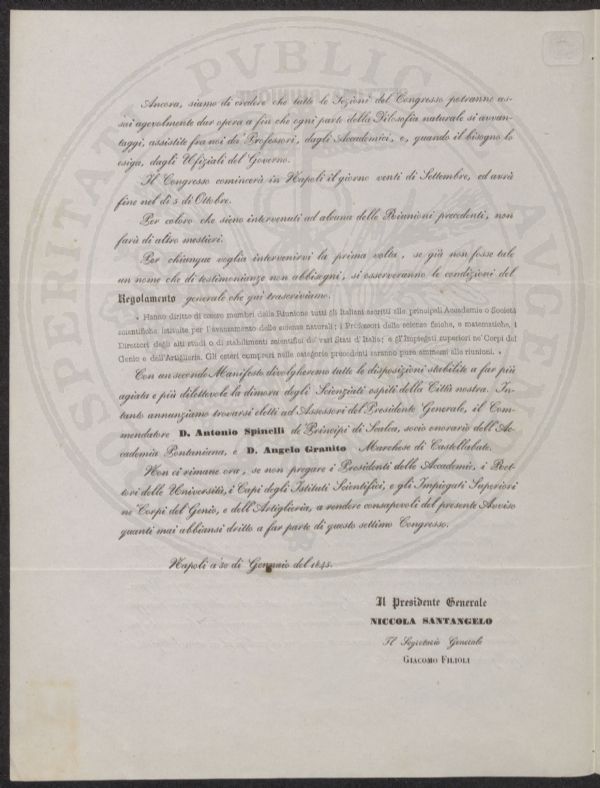 Ancora, siamo di credere che tutte le Sezioni del Congresso potranno as-
sai agevolmente dar opera a fin che ogni parte della Filosofia naturale si avvan-
taggi, assistite fra noi da' Professori, dagli Accademici, e, quando il bisogno lo
esiga, dagli Ufiziali del Governo.
Il Congresso comincerà in Napoli il giorno venti di Settembre, ed avrà
fine nel dì 5 di Ottobre.
Per coloro che sieno intervenuti ad alcuna delle Riunioni precedenti, non
farà di altro mestieri.
Per chiunque voglia intervenirvi la prima volta, se già non fosse tale
un nome che di testimonianze non abbisogni, si osserveranno le condizioni del
Regolamento generale che qui trascriviamo.
« Hanno diritto di essere membri della Riunione tutti gli Italiani ascritti alle principali Accademie o Società
scientifiche istituite per l'avanzamento delle scienze naturali; i Professori delle scienze fisiche, e matematiche, i
Direttori degli alti studi o di stabilimenti scientifici de' vari Stati d'Italia; e gl'Impiegati superiori ne' Corpi del
Genio e dell'Artiglieria. Gli esteri compresi nelle categorie precedenti saranno pure ammessi alle riunioni. »
Con un secondo Manifesto divolgheremo tutte le disposizioni stabilite a far più
agiata e più dilettevole la dimora degli Scienziati ospiti della Città nostra. In-
tanto annunziamo trovarsi eletti ad Assessori del Presidente Generale, il Com-
mendatore D. Antonio Spinelli de' Principi di Scalea, socio onorario dell'Ac-
cademia Pontaniana, e D. Angelo Granito Marchese di Castellabate.
Non ci rimane ora, se non pregare i Presidenti delle Accademie, i Ret-
tori delle Università, i Capi degli Istituti Scientifici, e gli Impiegati Superiori
ne' Corpi del Genio, e dell'Artiglieria, a rendere consapevoli del presente Avviso
quanti mai abbiansi dritto a far parte di questo settimo Congresso.
Napoli a' 30 di Gennaio del 1845.
Il Presidente Generale
NICCOLA SANTANGELO
Il Segretario Generale
GIACOMO FILIOLI